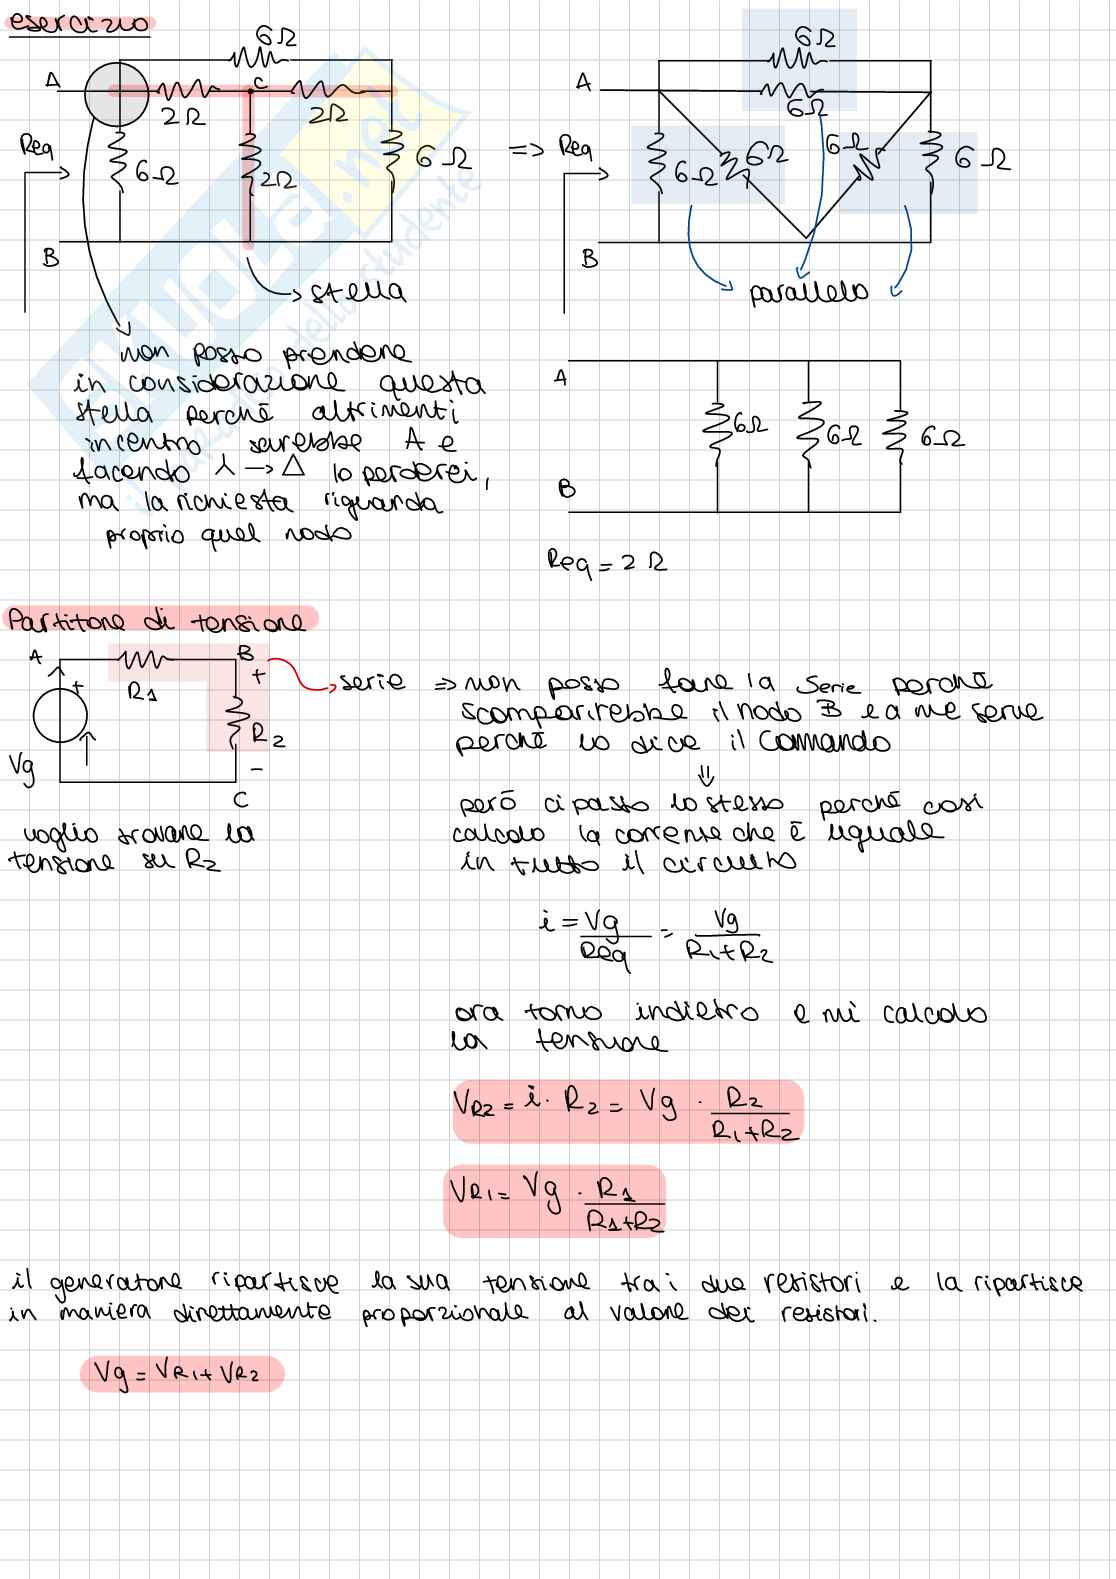 esercizio
6Ω
A
C
2Ω
2Ω
Req
6Ω
2Ω
6Ω
B
stella
=> Req
6Ω
A
6Ω
6Ω
6Ω
6Ω
6Ω
B
parallelo
non posso prendere
in considerazione questa
stella perchè altrimenti
incentro sarebbe A e
facendo ⅄ → Δ lo perderei,
ma la richiesta riguarda
proprio quel nodo
A
6Ω
6Ω
6Ω
B
Req = 2 Ω
Partitore di tensione
A
B
+
+
R1
R2
Vg
-
C
voglio trovare la
tensione su R2
serie ⇒ non posso fare la serie perchè
scomparirebbe il nodo B e a me serve
perchè lo dice il comando
⇓
però ci passo lo stesso perchè così
calcolo la corrente che è uguale
in tutto il circuito
i = Vg/Req = Vg/R1+R2
ora torno indietro e mi calcolo
la tensione
VR2 = i · R2 = Vg · R2/R1+R2
VR1 = Vg · R1/R1+R2
il generatore ripartisce la sua tensione tra i due resistori e la ripartisce
in maniera direttamente proporzionale al valore dei resistori.
Vg = VR1 + VR2